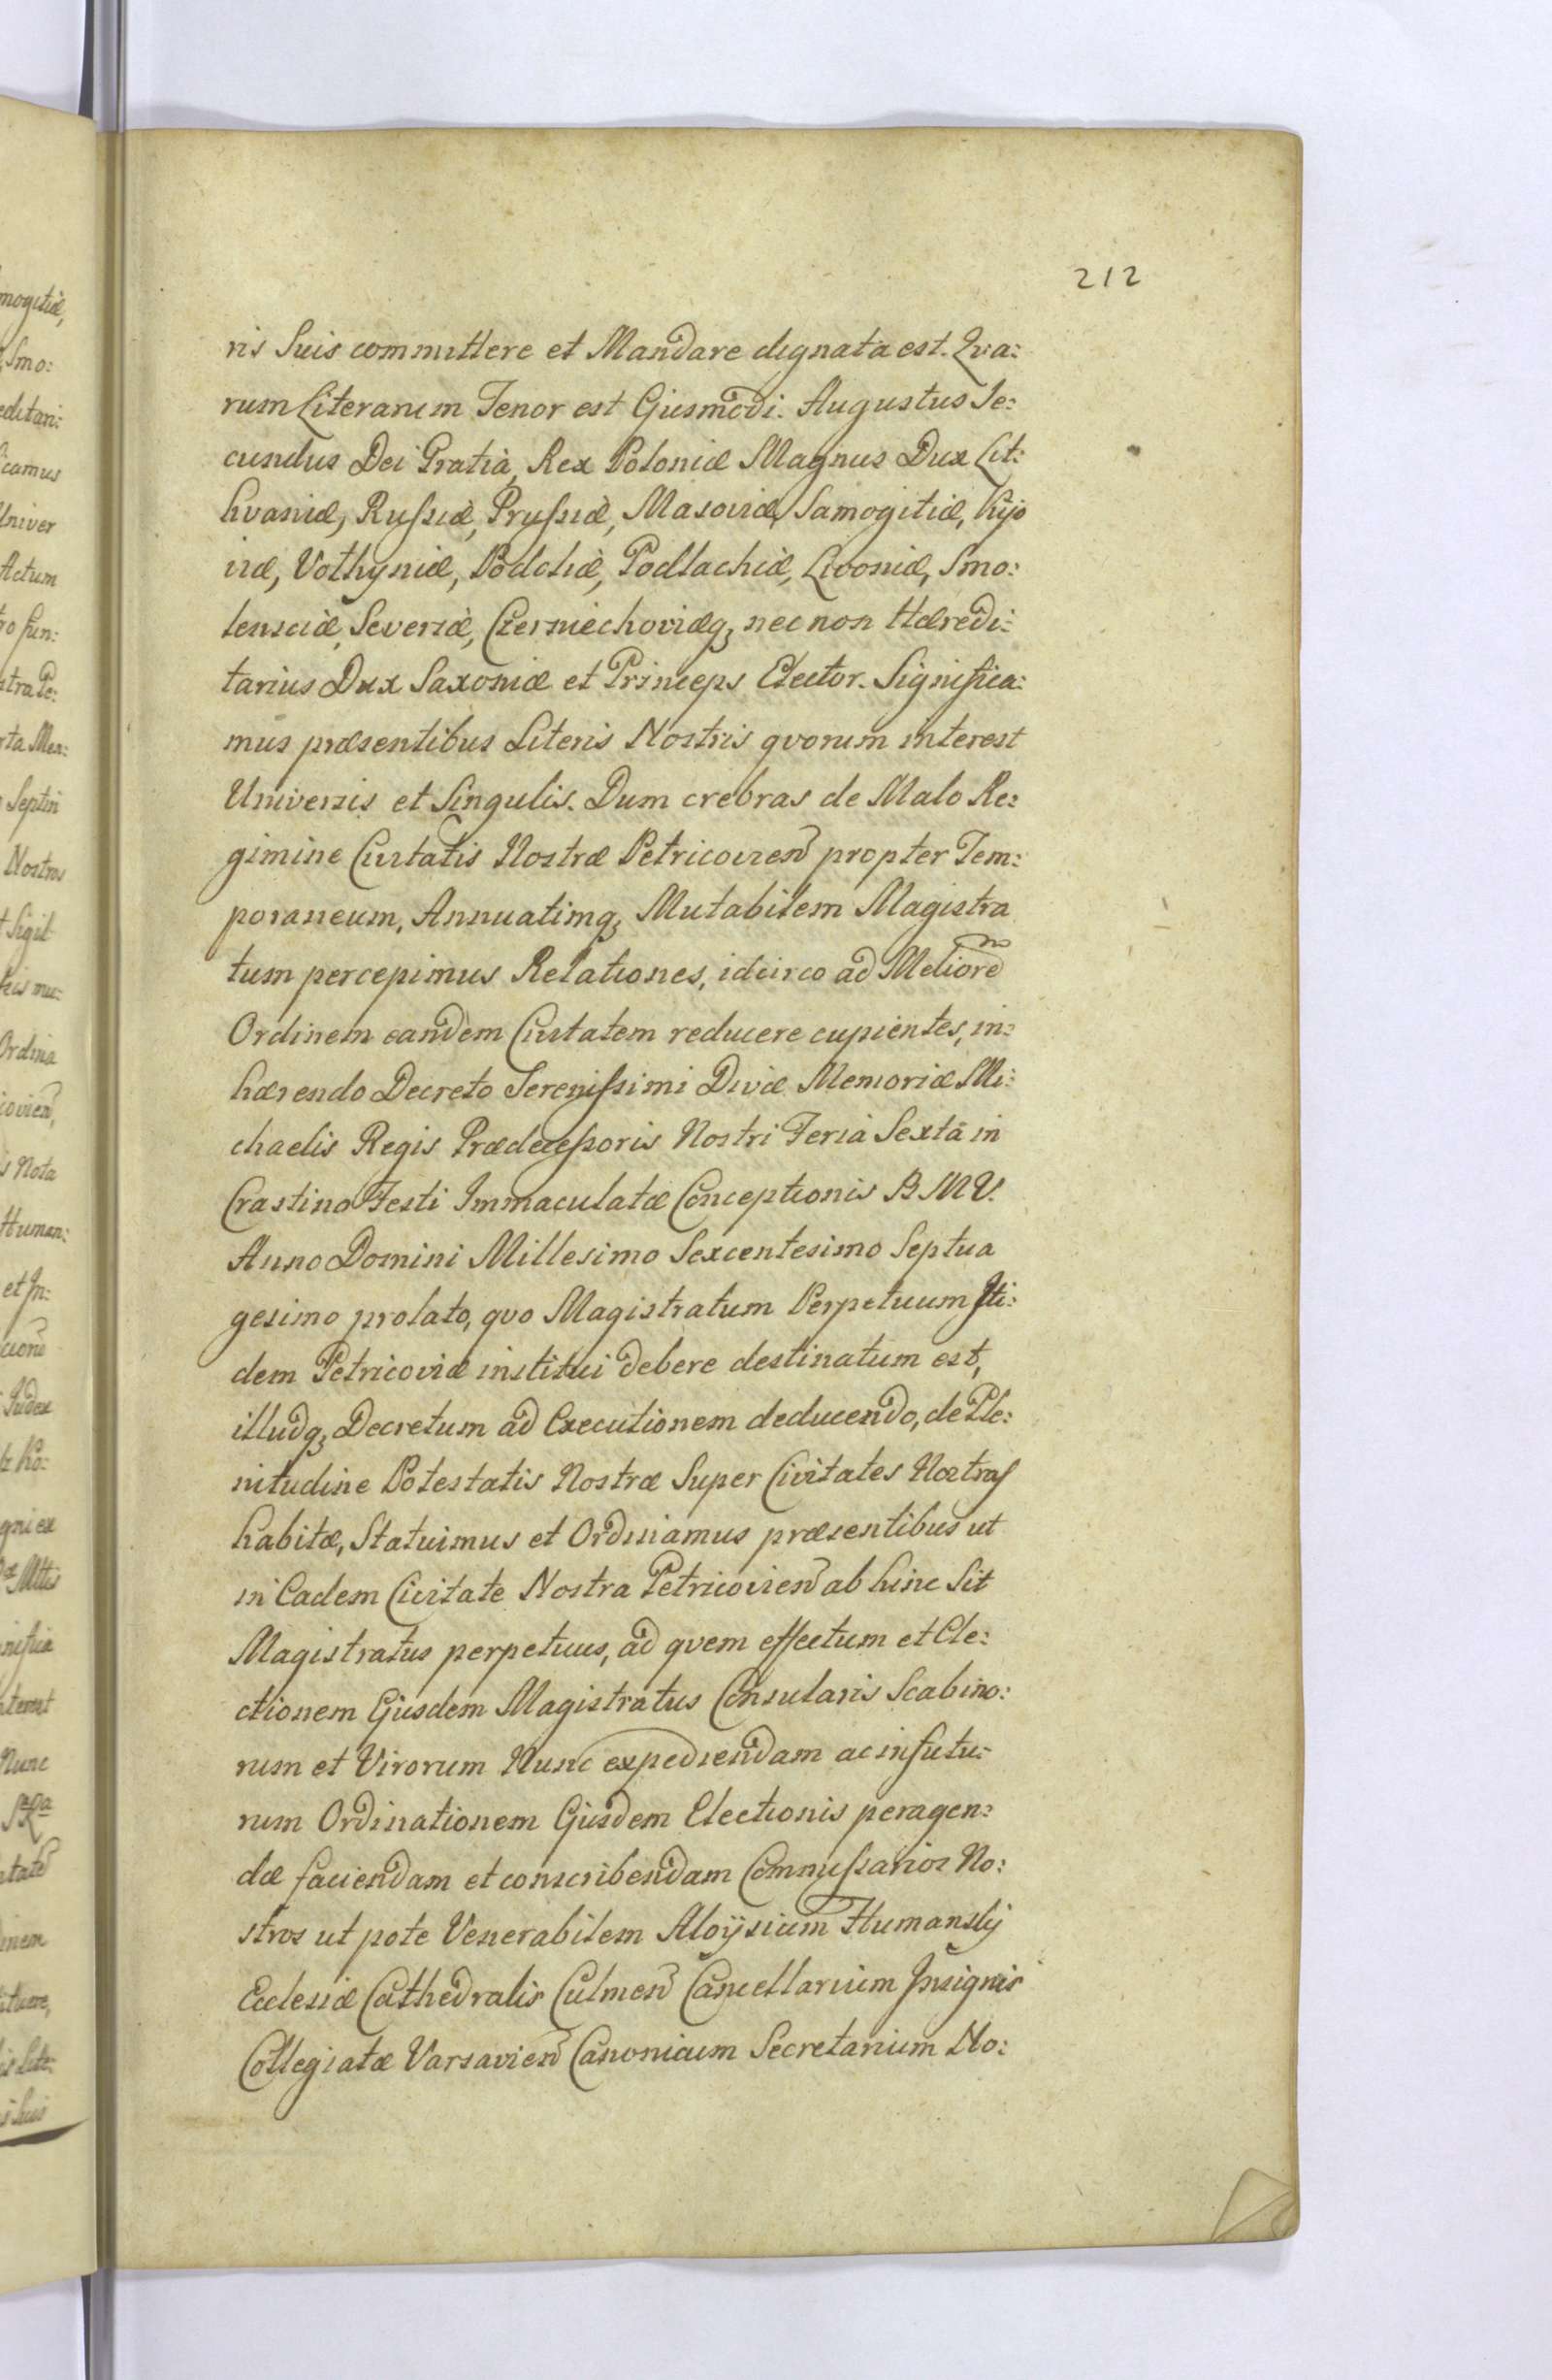 212
ris Suis committere et Mandare dignata est. Qva:
rum Literarum Tenor est Ejusmodi. Augustus Se:
cundus Dei Gratia, Rex Poloniæ Magnus Dux Lit:
hvaniæ, Rußiæ, Prußiæ, Masoviæ, Samogitiæ, Kijo
viæ, Volhyniæ, Podoliæ, Podlachiæ, Livoniæ, Smo:
lensciæ, Severiæ, Czerniechoviæq, nec non Hæredi:
tarius Dux Saxoniæ et Princeps Elector. Significa:
mus præsentibus Literis Nostris qvorum interest
Universis et Singulis. Dum crebras de Malo Re:
gimine Civitatis Nostræ Petricovien propter Tem:
poraneum, Annuatimq, Mutabilem Magistra
tum percepimus Relationes, idcirco ad Meliorem
Ordinem eandem Civitatem reducere cupientes, in:
hærendo Decreto Serenißimi Divæ Memoriæ Mi:
chaelis Regis Prædeceßoris Nostri Feria Sexta in
Crastino Festi Immaculatæ Conceptionis B M V.
Anno Domini Millesimo Sexcentesimo Septua
gesimo prolato, qvo Magistratum Perpetuum Iti:
dem Petricoviæ institui debere destinatum est,
illudq, Decretum ad Executionem deducendo, de Ple:
nitudine Potestatis Nostræ Super Civitates Nostras
habitæ, Statuimus et Ordinamus præsentibus ut
in Eadem Civitate Nostra Petricovien ab hinc Sit
Magistratus perpetuus, ad qvem effectum et Ele:
ctionem Ejusdem Magistratus Consularis Scabino:
rum et Virorum Nunc expediendam ac in futu:
rum Ordinationem Ejusdem Electionis peragen:
dæ faciendam et conscribendam Commißarios No:
stros ut pote Venerabilem Aloÿsium Humansky
Ecclesiæ Cathedralis Culmen Cancellarium Insignis
Collegiatæ Varsavien Canonicum Secretarium No: